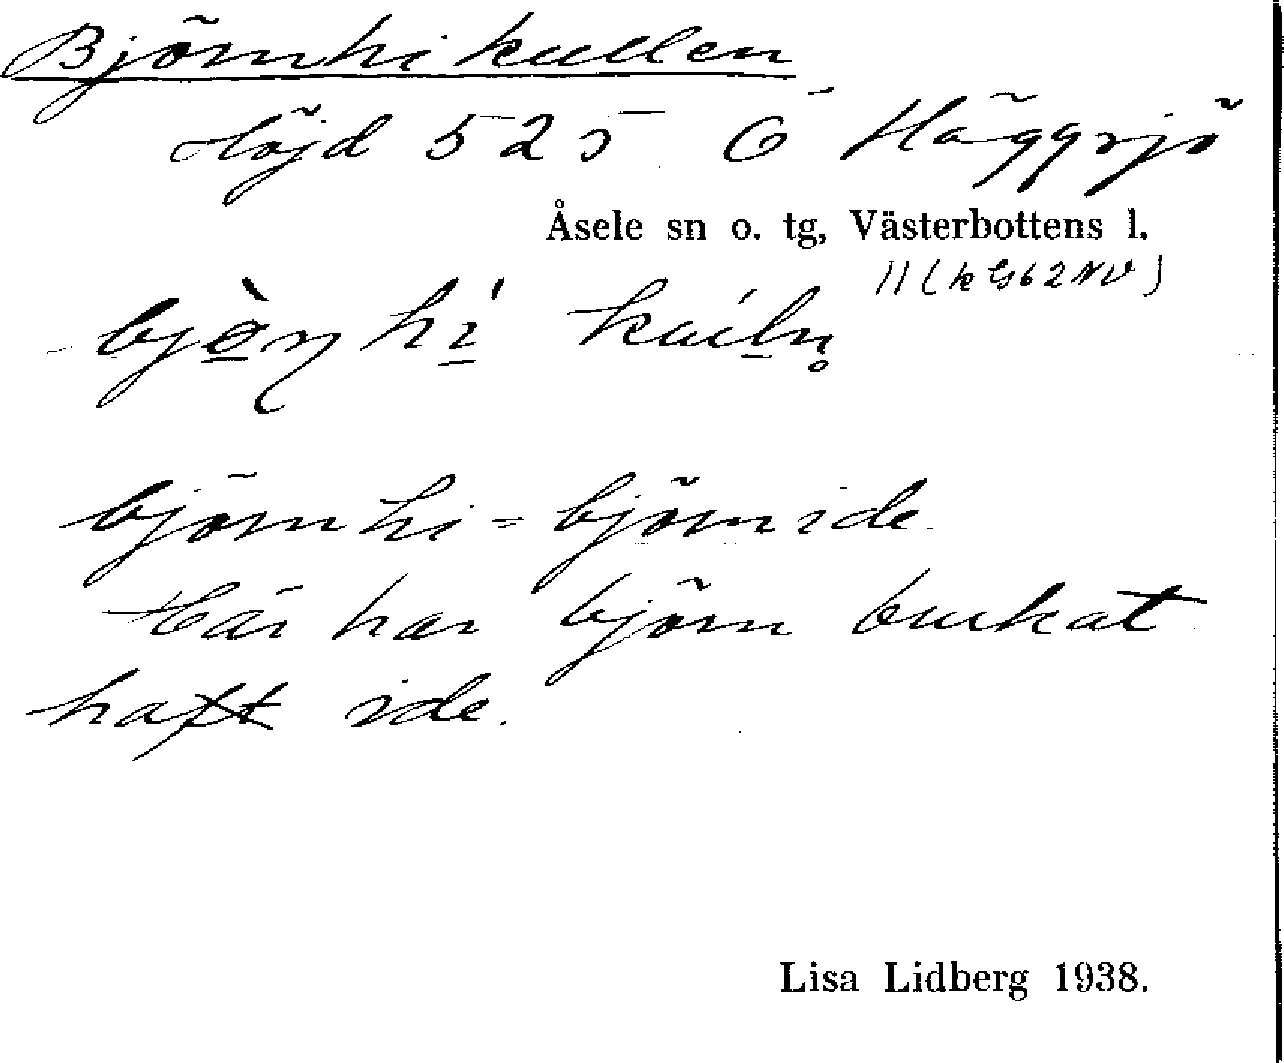 Björnhikullen
Höjd 525 Ö Häggsjö
Åsele sn o. tg, Västerbottens l.
11 (k G62NV)
björnhi = björnide.
Här har björn brukat
haft ide.
Lisa Lidberg 1938.